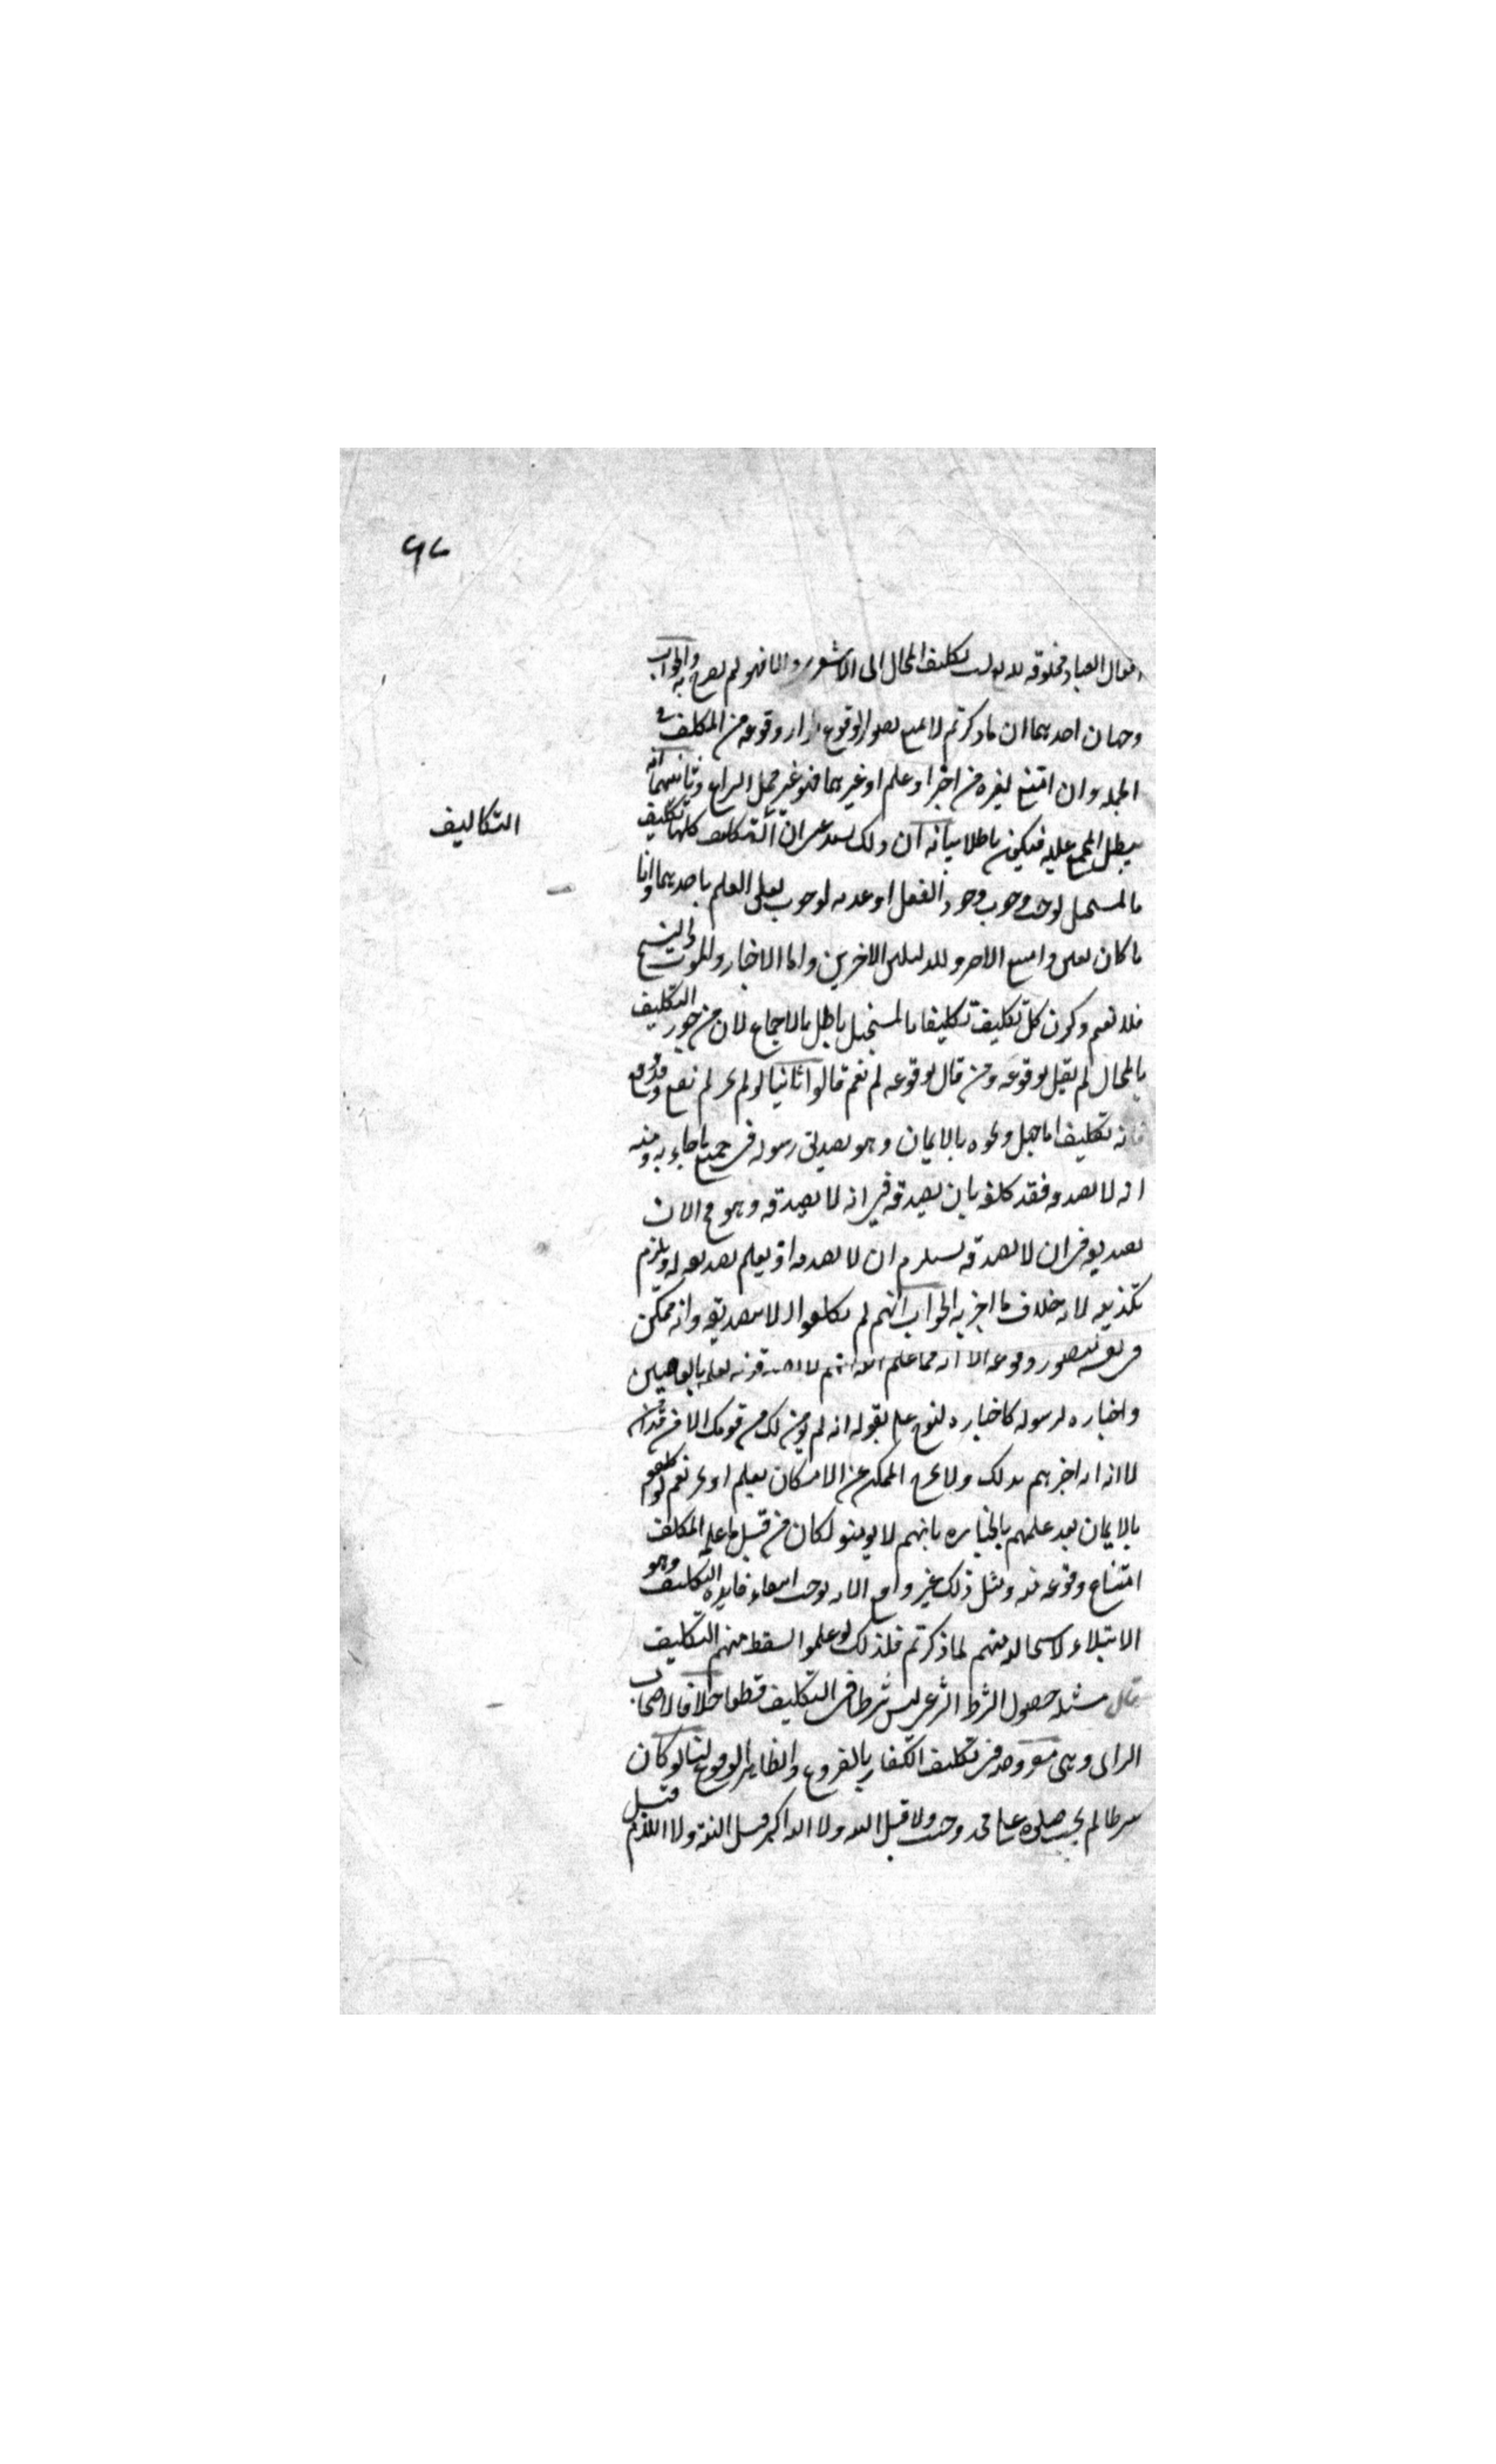 ٦٧
افعال العباد مخلوقة لله تعالى نسبت تكليف المحال الى الاشعري والا فهو لم يصرح به والجواب
وجهان احدهما ان ما ذكرتم لا يمنع تصور الوقوع وقوعه من المكلف في
الجملة وان امتنع لغيره من اخبر او علم او غيرهما فهو غير محل النزاع وثانيهما انه
يبطل المجمع عليه فيكون باطلا بيانه ان ذلك يستدعى ان التكاليف كلها تكليف
بالمستحيل لوجوب وجود الفعل او عدمه لوجوب تعلق العلم باحدهما وايا
ما كان تعين وامتنع الاخر وللدليلين الاخرين واما الاخبار والموت والنسخ
فلا تعم وكون كل تكليف تكليفا بالمستحيل باطل بالاجماع لان من جوز التكليف
بالمحال لم يقل بوقوعه ومن قال بوقوعه لم يعم قالوا ثانيا لو لم يجز لم يقع وقد وقع
فانه تكليف ابا جهل ونحوه بالايمان وهو تصديق رسوله في جميع ما جاء به ومنه
انه لا يصدقه فقد كلفه بان يصدقه في انه لا يصدقه وهو مح لان
تصديقه في ان لا يصدقه يستلزم ان لا يصدقه اذ يعلم تصديقه له ويلزم
تكذيبه لانه خلاف ما اخبر به الجواب انهم لم يكلفوا الا بتصديقه وانه ممكن
في نفسه متصور وقوعه الا انه مما علم الله انهم لا يصدقونه لعلمه بالعاصين
واخباره لرسوله كاخباره لنوح عم بقوله انه لن يؤمن لك من قومك الا من قد امن
لا انه اخبرهم بذلك ولا يخرج الممكن عن الامكان بعلم او خبر نعم لو كلفوا
بالايمان بعد علمهم باخباره بانهم لا يؤمنو لكان من قبيل ما علم المكلف
امتناع وقوعه منه ومثل ذلك غير واقع لانه يوجب انتفاء فايدة التكليف وهو
الابتلاء لاستحالته منهم لما ذكرتم فلذلك لو علموا لسقط منهم التكليف
قال مسئله حصول الشرط الشرعي ليس شرطا في التكليف قطعا خلافا لاصحاب
الراى وهى مفروضة في تكليف الكفار بالفروع والظاهر الوقوع لنا لو كان
شرطا لم يجب صلوة على محدث وجنب ولا قبل النية ولا الله اكبر قبل النية ولا اللام قبل
التكاليف